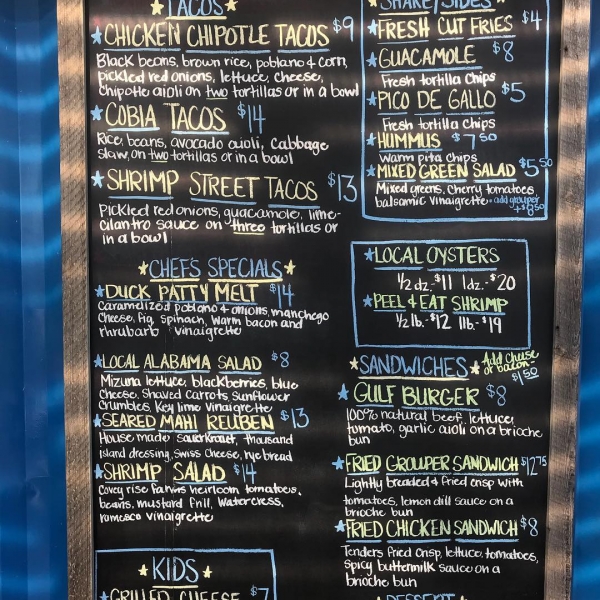 TACOS
CHICKEN CHIPOTLE TACOS $9
Black beans, brown rice, poblano & corn,
pickled red onions, lettuce, cheese,
chipotle aioli on two tortillas or in a bowl
COBIA TACOS $14
Rice, beans, avocado aioli, Cabbage
slaw, on two tortillas or in a bowl
SHRIMP STREET TACOS $13
Pickled red onions, guacamole, lime-
cilantro sauce on three tortillas or
in a bowl
CHEFS SPECIALS
DUCK PATTY MELT $14
Caramelized poblano & onions, manchego
Cheese, fig, spinach, warm bacon and
rhrubarb vinaigrette
LOCAL ALABAMA SALAD $8
Mizuna lettuce, blackberries, blue
Cheese, Shaved Carrots, Sunflower
Crumbles, Key lime Vinaigrette
SEARED MAHI REUBEN $13
House made sauerkraut, thousand
island dressing, Swiss Cheese, rye bread
SHRIMP SALAD $14
Covey rise farms heirloom tomatoes,
beans, mustard frill, Watercress,
romesco vinaigrette
KIDS
GRILLED CHEESE $7
SHARE/SIDES
FRESH CUT FRIES $4
GUACAMOLE $8
Fresh tortilla Chips
PICO DE GALLO $5
Fresh tortilla Chips
HUMMUS $7.50
Warm pita chips
MIXED GREEN SALAD $5.50
Mixed greens, Cherry tomatoes,
balsamic vinaigrette - add grouper
+$8.50
LOCAL OYSTERS
1/2 dz. - $11 1dz. - $20
PEEL & EAT SHRIMP
1/2 lb. - $12 1lb. - $19
SANDWICHES
Add Cheese
or bacon -
$1.50
GULF BURGER $8
100% natural beef, lettuce,
tomato, garlic aioli on a brioche
bun
FRIED GROUPER SANDWICH $12.75
Lightly breaded & fried crisp with
tomatoes, lemon dill sauce on a
brioche bun
FRIED CHICKEN SANDWICH $8
Tenders fried crisp, lettuce, tomatoes,
spicy buttermilk sauce on a
brioche bun
DESSERT